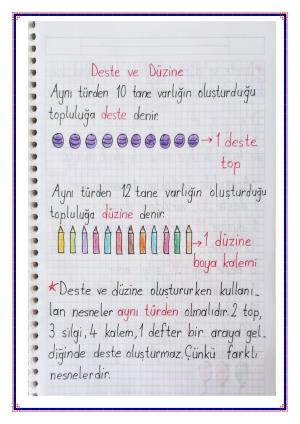 Deste ve Düzine
Aynı türden 10 tane varlığın oluşturduğu
topluluğa deste denir.
→1 deste
top
Aynı türden 12 tane varlığın oluşturduğu
topluluğa düzine denir.
→1 düzine
boya kalemi
★Deste ve düzine oluştururken kullanı-
lan nesneler aynı türden olmalıdır. 2 top,
3 silgi, 4 kalem, 1 defter bir araya gel-
diğinde deste oluşturmaz. Çünkü farklı
nesnelerdir.